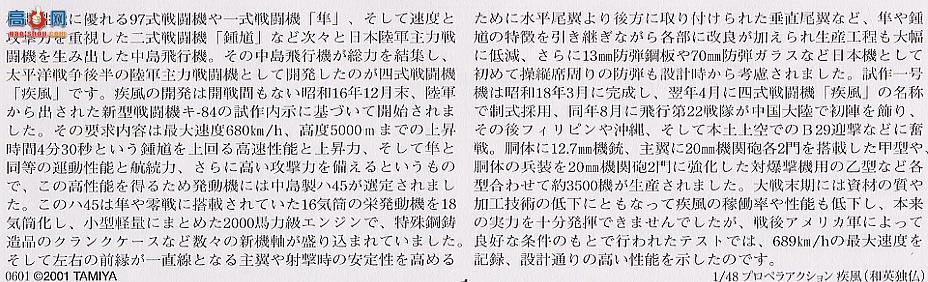 高山
に優れる97式戦闘機や一式戦闘機「隼」、そして速度と
攻撃力を重視した二式戦闘機「鍾馗」など次々と日本陸軍主力戦
闘機を生み出した中島飛行機。その中島飛行機が総力を結集し、
太平洋戦争後半の陸軍主力戦闘機として開発したのが四式戦闘機
「疾風」です。疾風の開発は開戦間もない昭和16年12月末、陸軍
から出された新型戦闘機キ-84の試作内示に基づいて開始されま
した。その要求内容は最大速度680km/h、高度5000mまでの上昇
時間4分30秒という鍾馗を上回る高速性能と上昇力、そして隼と
同等の運動性能と航続力、さらに高い攻撃力を備えるというもの
で、この高性能を得るため発動機には中島製ハ45が選定されまし
た。このハ45は隼や零戦に搭載されていた16気筒の栄発動機を18
気筒化し、小型軽量にまとめた2000馬力級エンジンで、特殊鋼鋳
造品のクランクケースなど数々の新機軸が盛り込まれていました。
そして左右の前縁が一直線となる主翼や射撃時の安定性を高める
0601 ©2001 TAMIYA
ために水平尾翼より後方に取り付けられた垂直尾翼など、隼や鍾
馗の特徴を引き継ぎながら各部に改良が加えられ生産工程も大幅
に低減、さらに13mm防弾鋼板や70mm防弾ガラスなど日本機として
初めて操縦席周りの防弾も設計時から考慮されました。試作一号
機は昭和18年3月に完成し、翌年4月に四式戦闘機「疾風」の名称
で制式採用、同年8月に飛行第22戦隊が中国大陸で初陣を飾り、
その後フィリピンや沖縄、そして本土上空でのB29迎撃などに奮
戦。胴体に12.7mm機銃、主翼に20mm機関砲各2門を搭載した甲型や、
胴体の兵装を20mm機関砲2門に強化した対爆撃機用の乙型など各
型合わせて約3500機が生産されました。大戦末期には資材の質や
加工技術の低下にともなって疾風の稼働率や性能も低下し、本来
の実力を十分発揮できませんでしたが、戦後アメリカ軍によって
良好な条件のもとで行われたテストでは、689km/hの最大速度を
記録、設計通りの高い性能を示したのです。
1/48 プロペラアクション 疾風(和英独仏)